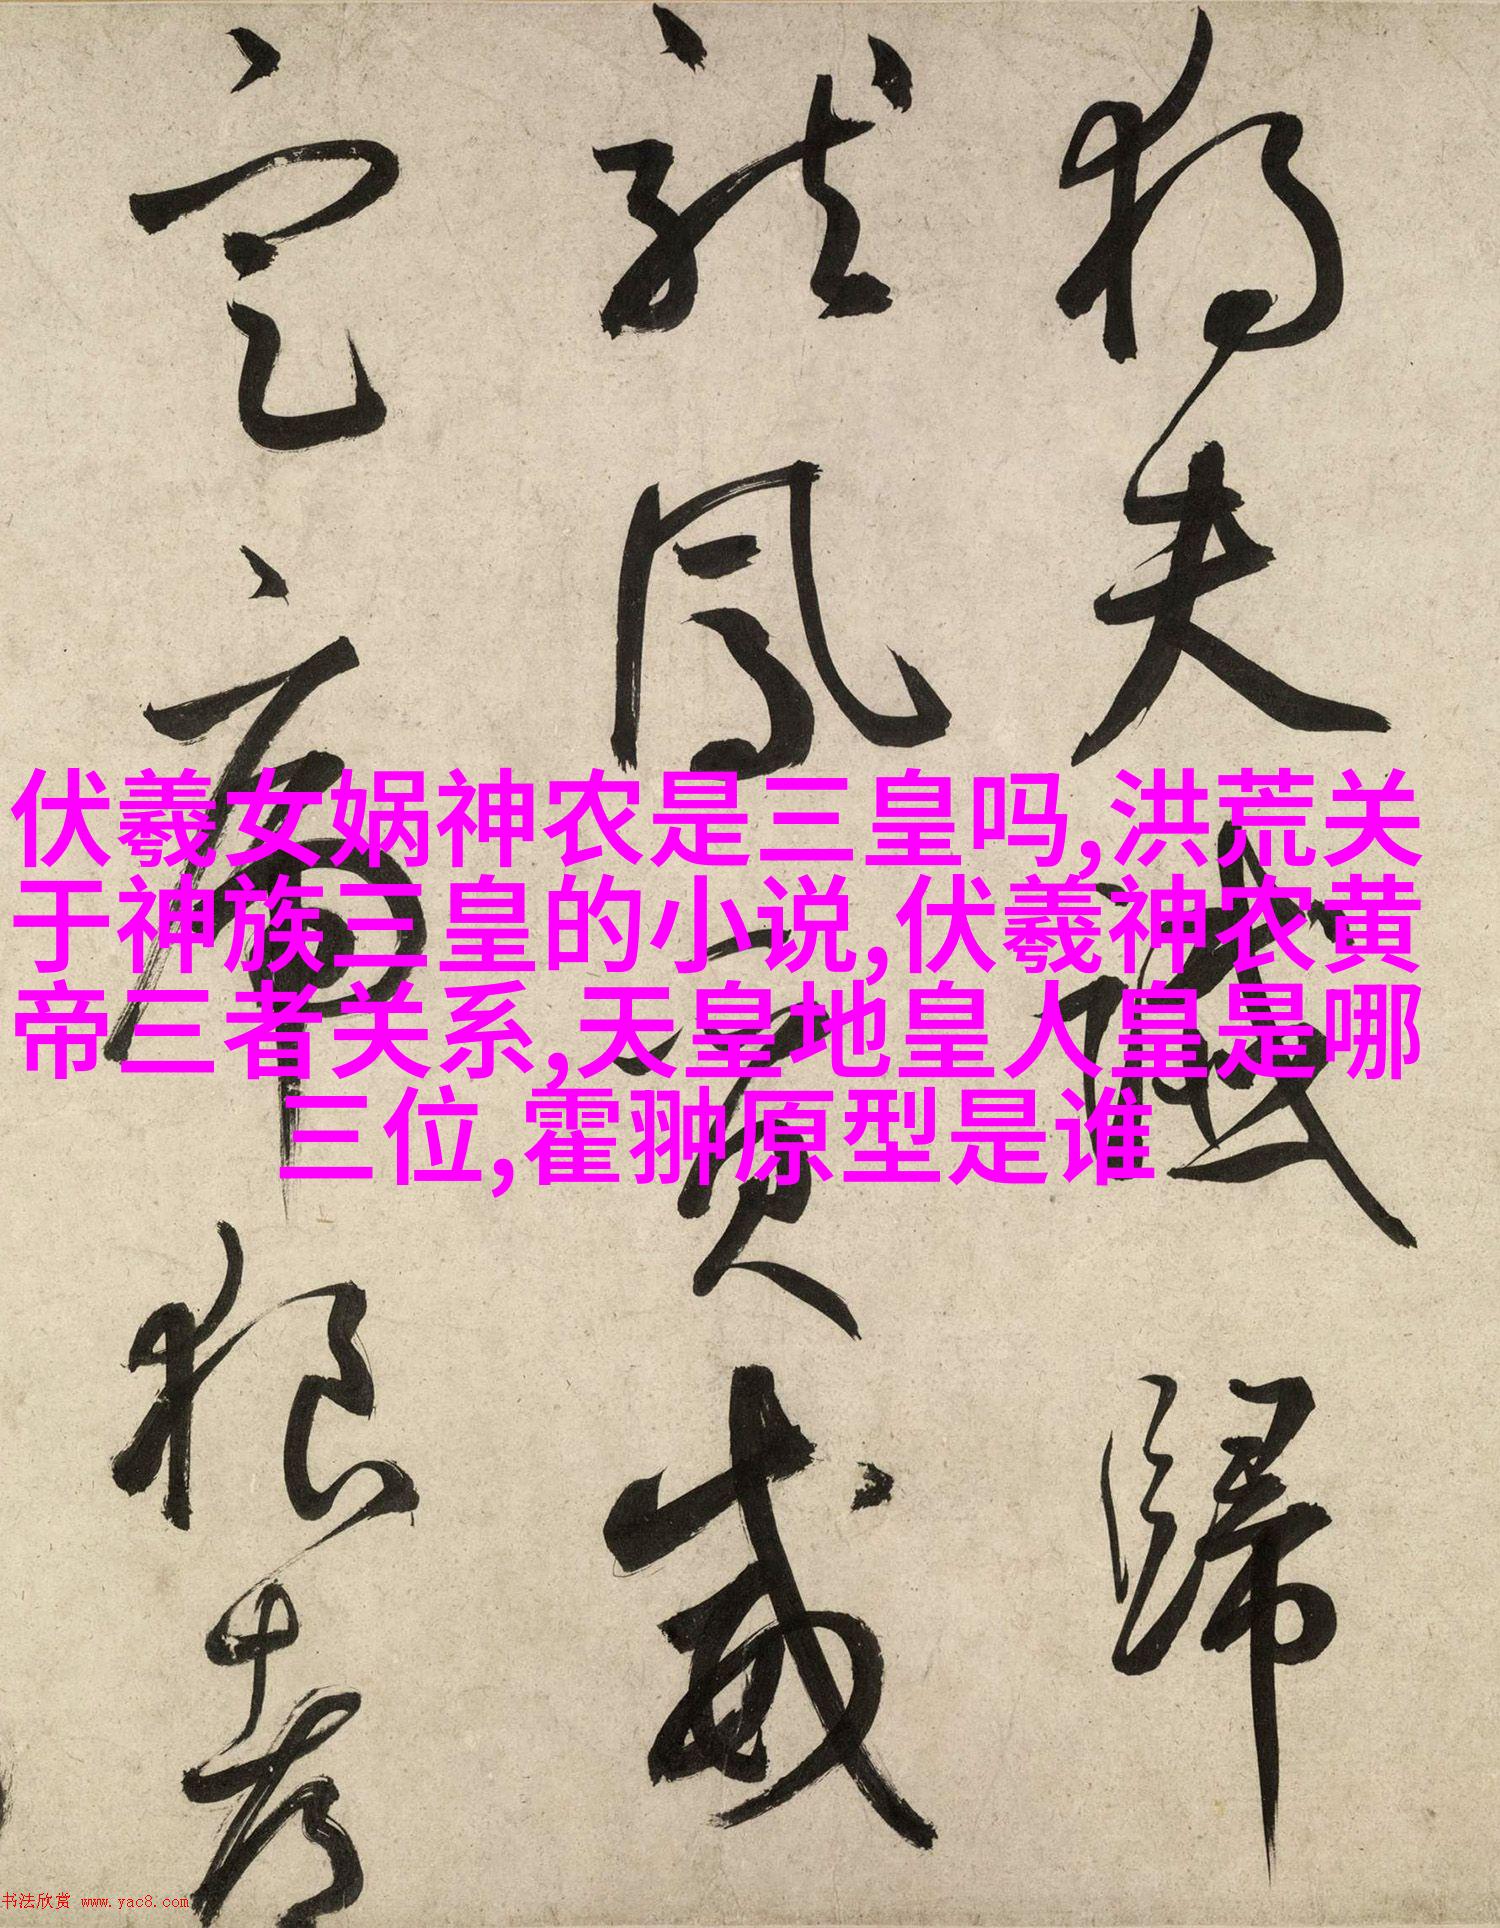 夫 歸
鳳
伏羲女娲神农是三皇吗,洪荒关
于神族三皇的小说,伏羲神农黄
帝三者关系,天皇地皇人皇是哪
三位,霍翀原型是谁
书法欣赏 www.yac8.com